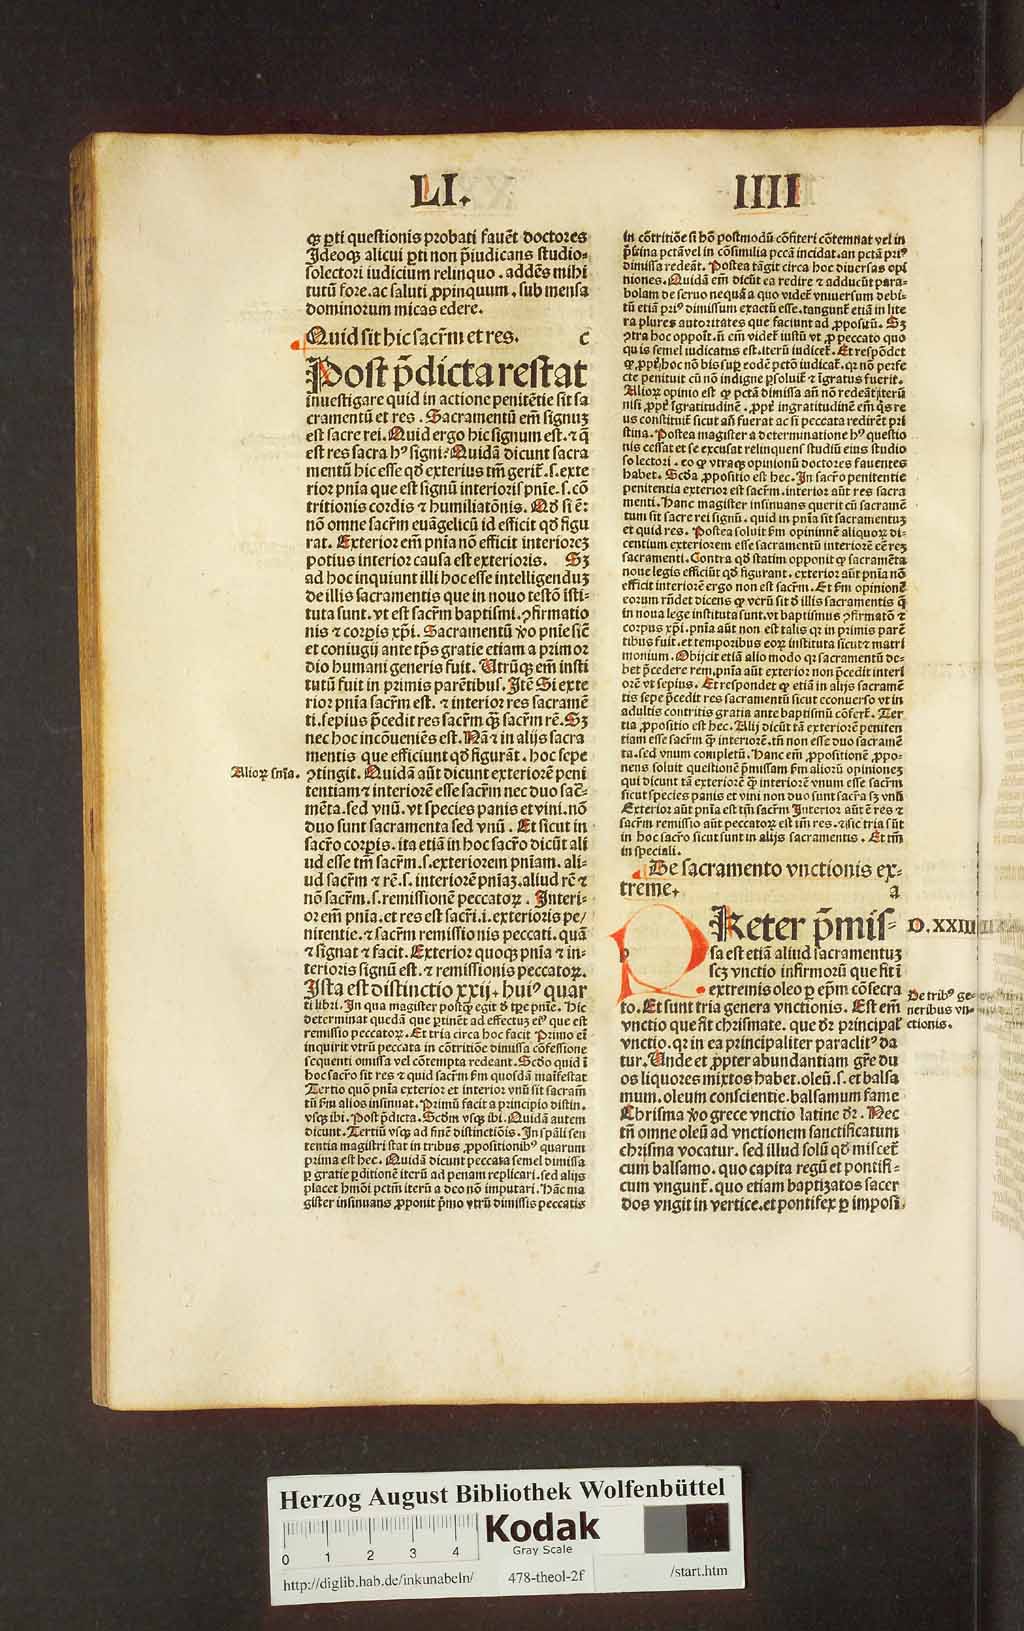 LI.
IIII
ꝙ ꝑti questionis probati fauēt doctores
Ideoqꝫ alicui ꝑti non p̄iudicans studio-
so lectori iudicium relinquo. addēs mihi
tutū fore. ac saluti ꝓpinquum. sub mensa
dominorum micas edere.
Quid sit hic sacr̄m et res. c
Post p̄dicta restat
inuestigare quid in actione penitētie sit sa
cramentū et res. Sacramentū em̄ signuꝫ
est sacre rei. Quid ergo hic signum est. ⁊ q̄
est res sacra hꝰ signi? Quidā dicunt sacra
mentū hic esse qd̄ exterius tm̄ gerit̄. s. exte
rior pn̄ia que est signū interioris pn̄ie. s. cō
tritionis cordis ⁊ humiliatōnis. Qd̄ si ē:
nō omne sacr̄m euāgelicū id efficit qd̄ figu
rat. Exterior em̄ pn̄ia nō efficit interioreꝫ
potius interior causa est exterioris. Sꝫ
ad hoc inquiunt illi hoc esse intelligenduꝫ
de illis sacramentis que in nouo testō isti-
tuta sunt. vt est sacr̄m baptismi. ꝯfirmatio
nis ⁊ corꝑis xp̄i. Sacramentū ṽo pn̄ie sic̄
et coniugij ante tp̄s gratie etiam a primor
dio humani generis fuit. Utrūqꝫ em̄ insti
tutū fuit in primis parētibus. Itē Si exte
rior pn̄ia sacr̄m est. ⁊ interior res sacramē
ti. sepius p̄cedit res sacr̄m qꝫ̄ sacr̄m rē. Sꝫ
nec hoc incōueniēs est. Nā ⁊ in alijs sacra
mentis que efficiunt qd̄ figurāt. hoc sepe
Alioꝝ sn̄ia.
ꝯtingit. Quidā aūt dicunt exteriorē peni
tentiam ⁊ interiorē esse sacr̄m nec duo sac̄-
mēta. sed vnū. vt species panis et vini. nō
duo sunt sacramenta sed vnū. Et sicut in
sacr̄o corꝑis. ita etiā in hoc sacr̄o dicūt ali
ud esse tm̄ sacr̄m. s. exteriorem pn̄iam. ali-
ud sacr̄m ⁊ rē. s. interiorē pn̄iaꝫ. aliud rē ⁊
nō sacr̄m. s. remissionē peccatoꝝ. Interi-
or em̄ pn̄ia. et res est sacr̄i. i. exterioris pe/
nitentie. ⁊ sacr̄m remissionis peccati. quā
⁊ signat ⁊ facit. Exterior quoqꝫ pn̄ia ⁊ in-
terioris signū est. ⁊ remissionis peccatoꝝ.
Ista est distinctio xxij. huiꝰ quar
ti libri. In qua magister postqꝫ̄ egit d̄ tꝑe pn̄ie. Hic
determinat quedā que ꝑtinēt ad effectuꝫ eiꝰ que est
remissio peccatoꝝ. Et tria circa hoc facit Primo em̄
inquirit vtrū peccata in cōtritiōe dimissa cōfessione
sequenti omissa vel cōtempta redeant. Scd̄o quid ī
hoc sacr̄o sit res ⁊ quid sacr̄m fm̄ quosdā māifestat
Tertio quō pn̄ia exterior et interior vnū sit sacram̄
tū fm̄ alios insinuat. Primū facit a principio distin.
vsqꝫ ibi. Post p̄dicta. Scd̄m vsqꝫ ibi. Quidā autem
dicunt. Tertiū vsqꝫ ad finē distinctiōis. In sp̄ali sen
tentia magistri stat in tribus ꝓpositionibꝰ quarum
prima est hec. Quidā dicunt peccata semel dimissa
ꝑ gratie ꝑditionē iterū ad penam replicari. sed alijs
placet hm̄oi pctm̄ iterū a deo nō imputari. Hāc ma
gister insinuans ꝓponit p̄mo vtrū dimissis peccatis
in cōtritiōe si hō postmodū cōfiteri cōtemnat vel in
p̄stina pctā vel in cōsimilia pccā incidat. an pctā priꝰ
dimissa redeāt. Postea tāgit circa hoc diuersas opi
niones. Quidā em̄ dicūt ea redire ⁊ adducūt para-
bolam de seruo nequā a quo videt̄ vniuersum debi-
tū etiā priꝰ dimissum exactū esse. tangunt̄ etiā in lite
ra plures autoritates que faciunt ad ꝓpositū. Sꝫ
ꝯtra hoc oppoīt. n̄ em̄ videt̄ iustū vt ꝓ peccato quo
quis semel iudicatus est. iterū iudicet̄. Et respōdet
ꝙ ꝓpt̄ hoc nō bis suꝑ eodē pctō iudicat̄. qꝛ nō perfe
cte penituit cū nō indigne ꝑsoluit̄ ⁊ īgratus fuerit.
Alioꝝ opinio est ꝙ pctā dimissa an̄ nō redeāt iterū
nisi ꝓpt̄ īgratitudinē. ꝓpt̄ ingratitudinē em̄ q̄s re
us constituit̄ sicut an̄ fuerat ac si peccata redirēt pri
stina. Postea magister a determinatione hꝰ questio
nis cessat et se excusat relinquens studiū eius studio
so lectori. eo ꝙ vtraqꝫ opinionū doctores fauentes
habet. Scd̄a ꝓpositio est hec. In sacr̄o penitentie
penitentia exterior est sacr̄m. interior aūt res sacra
menti. Hanc magister insinuans querit cū sacramē
tum sit sacre rei signū. quid in pn̄ia sit sacramentuꝫ
et quid res. Postea soluit fm̄ opininnē aliquoꝝ di-
centium exteriorem esse sacramentū interiorē eē reꝫ
sacramenti. Contra qd̄ statim opponit ꝙ sacramēta
noue legis efficiūt qd̄ figurant. exterior aūt pn̄ia nō
efficit interiorē ergo non est sacr̄m. Et fm̄ opinionē
eorum rn̄det dicens ꝙ verū sit d̄ illis sacramentis q̄
in noua lege instituta sunt. vt baptismus ꝯfirmatō ⁊
corpus xp̄i. pn̄ia aūt non est talis qꝛ in primis parē
tibus fuit. et temporibus eoꝝ instituta sicut ⁊ matri
monium. Obijcit etiā alio modo qꝛ sacramentū de-
bet p̄cedere rem. pn̄ia aūt exterior non p̄cedit interi
orē vt sepius. Et respondet ꝙ etiā in alijs sacramē
tis sepe p̄cedit res sacramentū sicut econuerso vt in
adultis contritis gratia ante baptismū cōfert̄. Ter
tia ꝓpositio est hec. Alij dicūt tā exteriorē peniten
tiam esse sacr̄m qꝫ̄ interiorē. tn̄ non esse duo sacramē
ta. sed vnum completū. Hanc em̄ ꝓpositionē ꝓpo-
nens soluit questionē p̄missam fm̄ aliorū opinioneꝫ
qui dicunt tā exteriorē qꝫ̄ interiorē vnum esse sacr̄m
sicut species panis et vini non duo sunt sacr̄a sꝫ vnū
Exterior aūt pn̄ia est tm̄ sacr̄m Interior aūt ē res ⁊
sacr̄m remissio aūt peccatoꝝ est tm̄ res. ⁊ sic tria sūt
in hoc sacr̄o sicut sunt in alijs sacramentis. Et tm̄
in speciali.
De sacramento vnctionis ex-
treme. a
PReter p̄mis-
D. XXIII
sa est etiā aliud sacramentuꝫ
scꝫ vnctio infirmorū que fit ī
extremis oleo ꝑ ep̄m cōsecra
to. Et sunt tria genera vnctionis. Est em̄
De tribꝰ ge-
neribus vn-
ctionis.
vnctio que fit chrismate. que dr̄ principal̄
vnctio. qꝛ in ea principaliter paraclitꝰ da
tur. Unde et ꝓpter abundantiam gr̄e du
os liquores mixtos habet. oleū. s. et balsa
mum. oleum conscientie. balsamum fame
Chrisma ṽo grece vnctio latine dr̄. Nec
tn̄ omne oleū ad vnctionem sanctificatum
chrisma vocatur. sed illud solū qd̄ miscet̄
cum balsamo. quo capita regū et pontifi-
cum vngunt̄. quo etiam baptizatos sacer
dos vngit in vertice. et pontifex ꝑ imposi
Herzog August Bibliothek Wolfenbüttel
0 1 2 3 4
Kodak
Gray Scale
http://diglib.hab.de/inkunabeln/
478-theol-2f
/start.htm